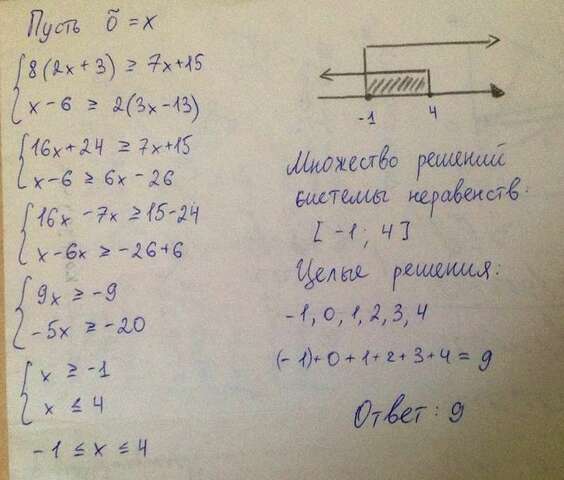 Пусть õ = x
8(2x+3) ≥ 7x+15
x-6 ≥ 2(3x-13)
16x+24 ≥ 7x+15
x-6 ≥ 6x-26
16x-7x ≥ 15-24
x-6x ≥ -26+6
9x ≥ -9
-5x ≥ -20
x ≥ -1
x ≤ 4
-1 ≤ x ≤ 4
-1 4
Множество решений
системы неравенств:
[-1; 4]
Целые решения:
-1, 0, 1, 2, 3, 4
(-1)+0+1+2+3+4 = 9
Ответ: 9